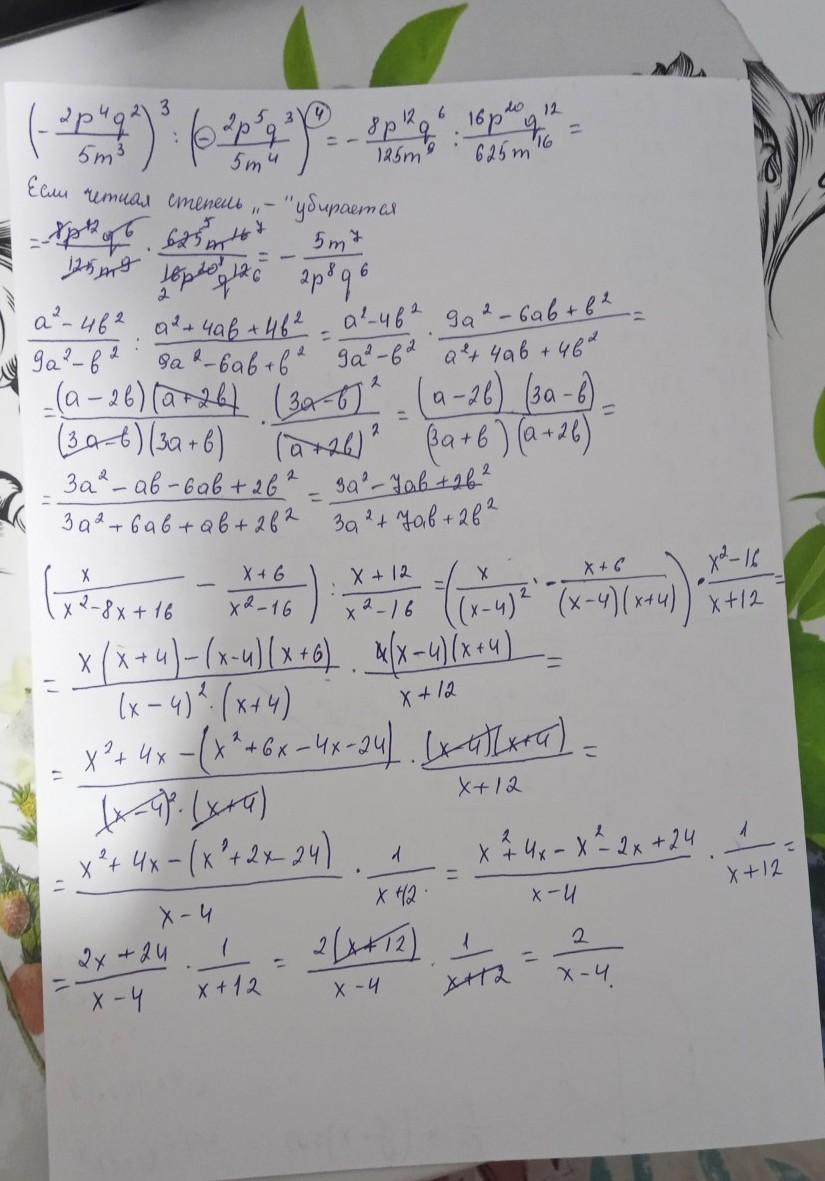 (- 2p⁴q²/5m³)³ : (- 2p⁵q³/5m⁴)⁴ = - 8p¹²q⁶/125m⁹ : 16p²⁰q¹²/625m¹⁶ =
Если четная степень „-" убирается
= - 8p¹²q⁶/125m⁹ · 625⁵m¹⁶⁷/₂16p²⁰⁸q¹²₆ = - 5m⁷/2p⁸q⁶
a²-4b²/9a²-b² : a²+4ab+4b²/9a²-6ab+b² = a²-4b²/9a²-b² · 9a²-6ab+b²/a²+4ab+4b² =
= (a-2b)(a+2b)/(3a-b)(3a+b) · (3a-b)²/(a+2b)² = (a-2b)(3a-b)/(3a+b)(a+2b) =
= 3a²-ab-6ab+2b²/3a²+6ab+ab+2b² = 3a²-7ab+2b²/3a²+7ab+2b²
(x/x²-8x+16 - x+6/x²-16) : x+12/x²-16 = (x/(x-4)² - x+6/(x-4)(x+4)) · x²-16/x+12 =
= x(x+4)-(x-4)(x+6)/(x-4)²·(x+4) · (x-4)(x+4)/x+12 =
= x²+4x-(x²+6x-4x-24)/(x-4)²·(x+4) · (x-4)(x+4)/x+12 =
= x²+4x-(x²+2x-24)/x-4 · 1/x+12 = x²+4x-x²-2x+24/x-4 · 1/x+12 =
= 2x+24/x-4 · 1/x+12 = 2(x+12)/x-4 · 1/x+12 = 2/x-4.